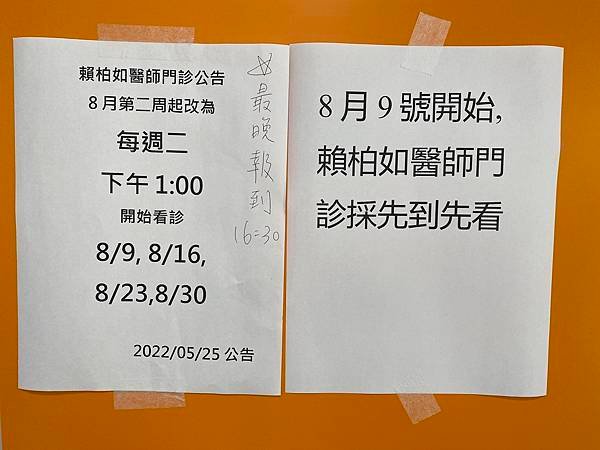 賴柏如醫師門診公告
8月第二周起改為
每週二
下午1:00
開始看診
8/9, 8/16,
8/23,8/30
2022/05/25 公告
☆最晚報到
16:30
8月9號開始,
賴柏如醫師門
診採先到先看